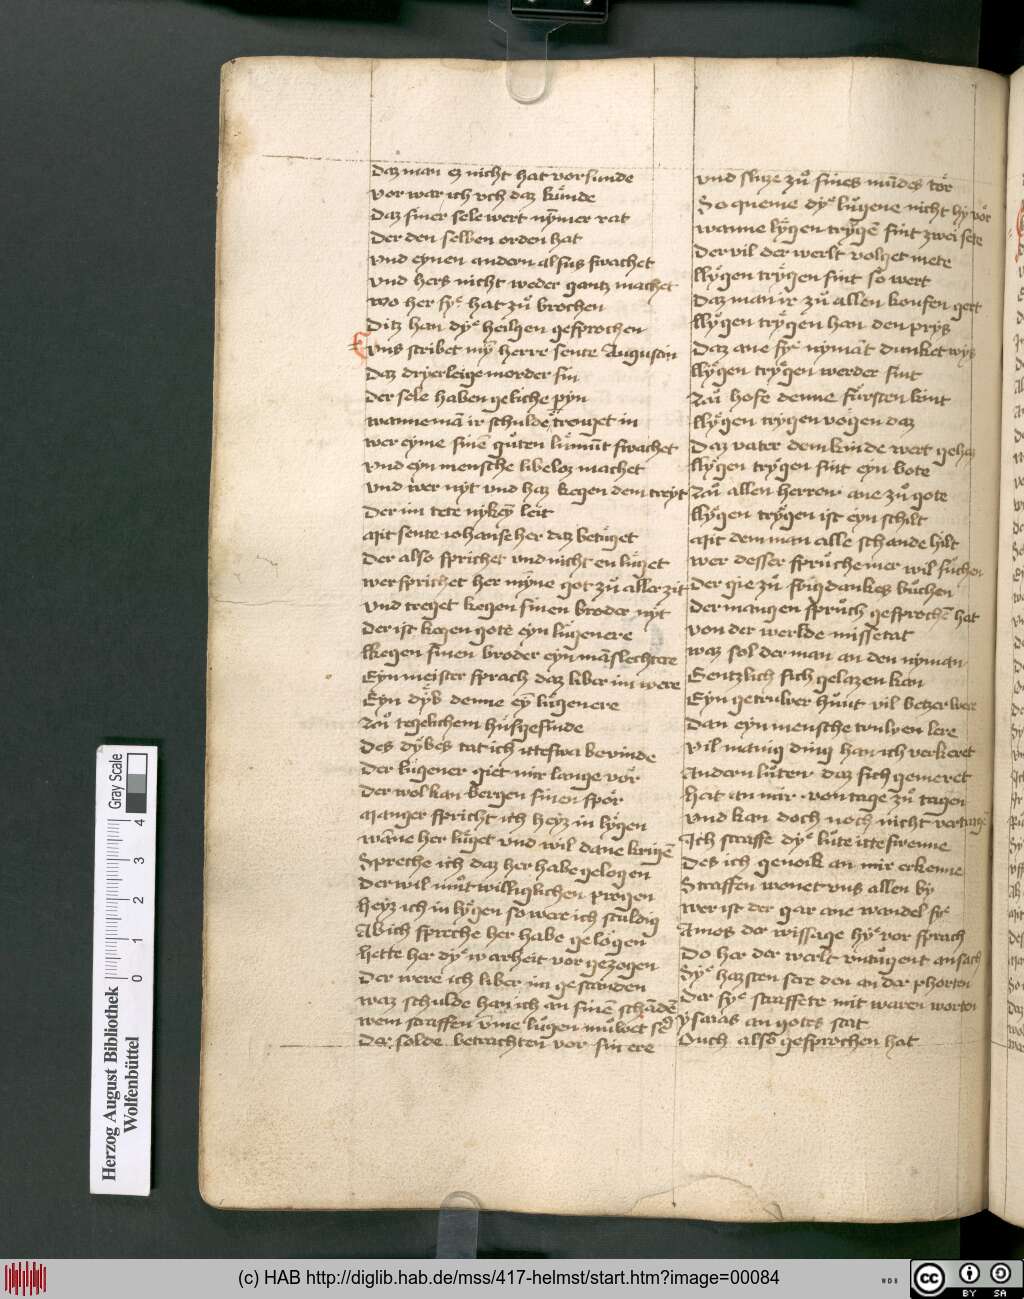 daz man ez nicht hat vorsunde
vor war ich vch daz kunde
daz siner sele wert nymer rat
der den selben orden hat
vnd eynen andern alsus swachet
vnd hers nicht weder gantz machet
wo her sye hat zu brochen
ditz han dye heilgen gesprochen
vns scribet my herre sente Augustin
daz dryerleige morder sin
der sele haben geliche pyn
wanne ma ir schulde trenget in
wer eyme sine guten lumut swachet
vnd eyn mensche libeloz machet
vnd wer nyt vnd haz kegen dem treyt
der im tete nykey leit
Mit sente iohanse her daz betuget
der also sprichet vnd nicht en luget
wer sprichet her myne got zu aller zit
vnd treget kegen sinen broder nyt
der ist kegen gote eyn lugenere
kegen sinen broder eyn maslechtere
Eyn meister sprach daz liber im were
Eyn dyb denne ey lugenere
Zu tegelichem husgesinde
des dybes tat ich etteswa bevinde
der lugener giet mir lange vor
der wol kan bergen sinen spor
Manger spricht ich heyz in lygen
wane her luget vnd wil dane krige
Spreche ich daz her habe gelogen
der wil mutwilliglichen progen
heyz ich in lygen so were ich sculdig
Ab ich spreche her habe gelogen
hette her dye warheit vor gezogen
der were ich liber im gestanden
waz schulde han ich an sine schade
wem straffen vme lugen muwet ser
der solde betrachten vor sin ere
vnd slize zu sines mudes tor
So queme dye lugene nicht hy vor
wanne lygen tryge sint zwei sete
der vil der werlt volget mete
lygen trygen sint so wert
daz man ir zu allen koufen gert
lygen trygen han den prys
daz ane sye nymat dunket wys
lygen trygen werder sint
Zu hofe denne fursten kint
lygen trygen vogen daz
daz vater dem kinde wert gehaz
lygen trygen sint eyn bote
Zu allen herren ane zu gote
lygen trygen ist eyn schilt
Mit dem man alle schande hilt
wer desser spruche mer wil suchen
der gie zu frigdankes buchen
der mangen spruch gesproche hat
von der werlde missetat
waz sol der man an den nyman
Gentzlich sich gelazen kan
Eyn getruwer hunt vil betzer were
dan eyn mensche truwen lere
vil mang ding han ich verkeret
Andern luten daz sich gemeret
hat an mir von tage zu tagen
vnd kan doch noch nicht vertrage
Ich straffe dye lute etteswenne
des ich genoik an mir erkenne
Straffen wonet vns allen by
wer ist der gar ane wandel sye
Amos der wissage hye vor sprach
do her der werlt vntugent ansach
Sye hazsten sere den an der phorten
der sye straffete mit waren worten
ysaias an gotes stat
Ouch also gesprochen hat
Herzog August Bibliothek
Wolfenbüttel
0 1 2 3 4 Gray Scale
(c) HAB http://diglib.hab.de/mss/417-helmst/start.htm?image=00084
WDB
cc BY SA